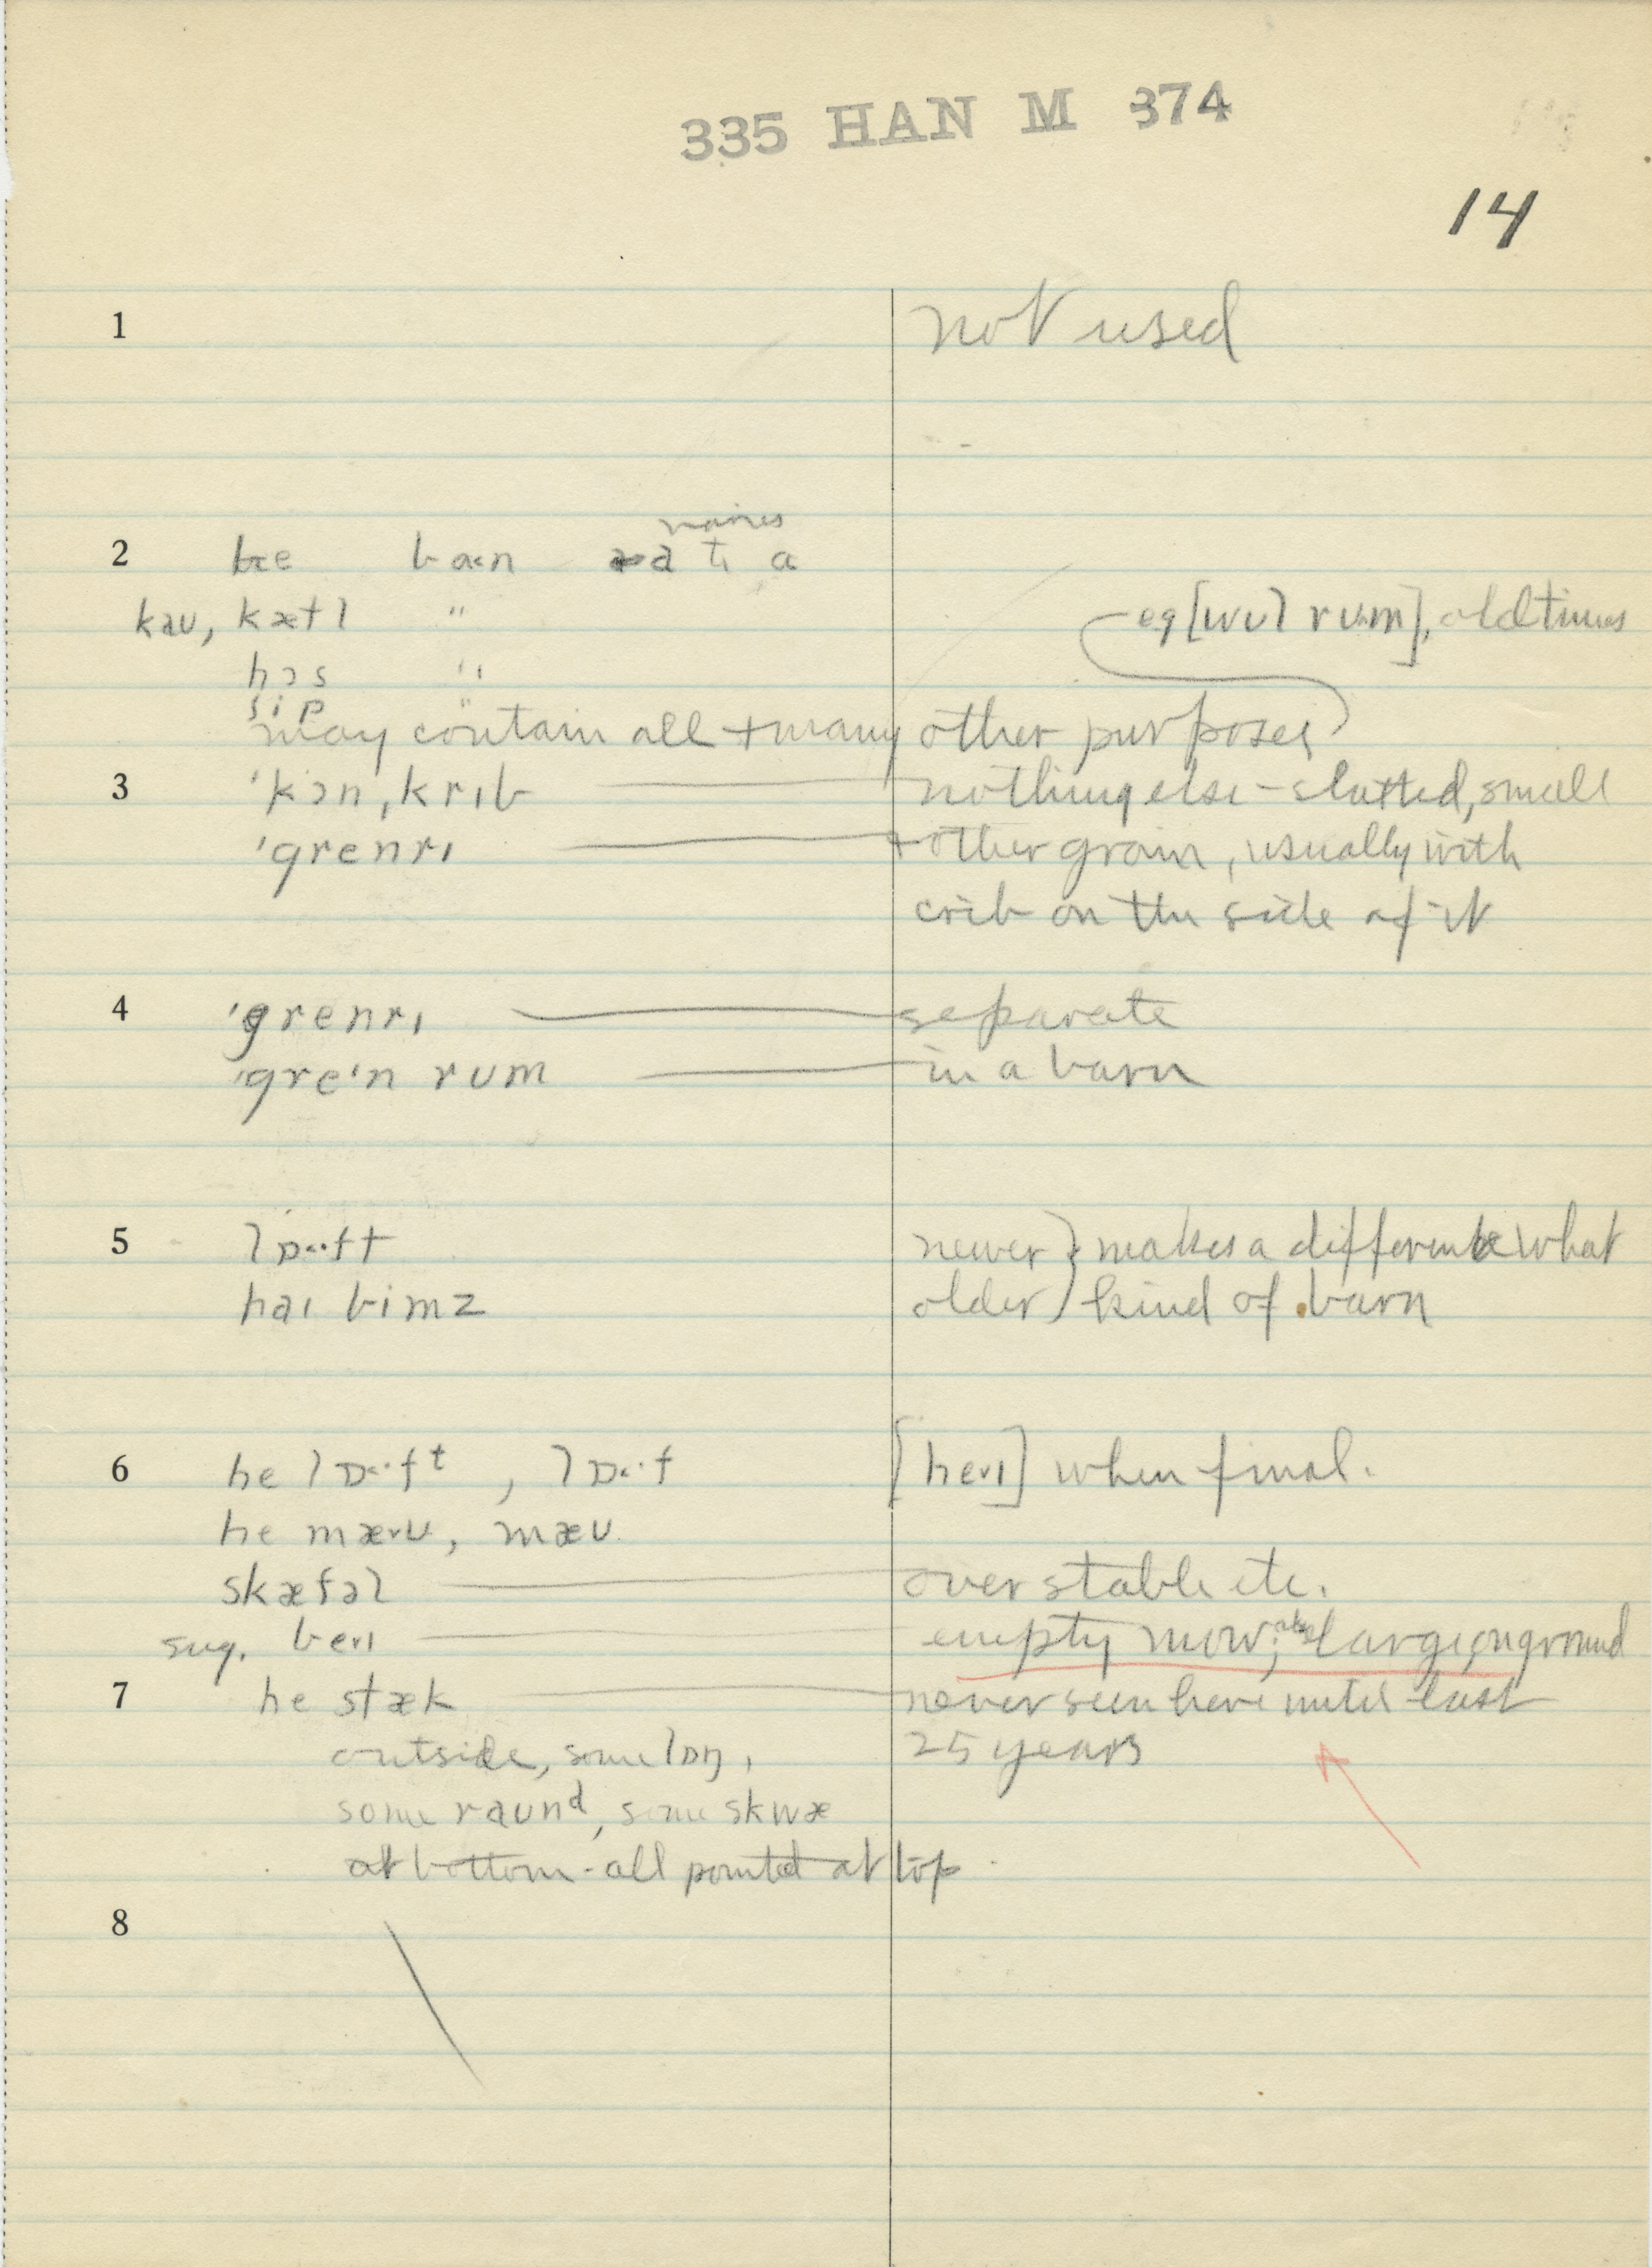 335 HAN M 374
14
1 not used
names
2 he ban a tɪ a
kaʊ, kætl "
eg [wʊl rum], old times
hɔs "
sip "
may contain all + many other purposes
3 'kɔn, krɪb nothing else - slatted, small
'grenrɪ + other grain, usually with
crib on the side of it
4 'grenrɪ separate
'gre'n rum in a barn
5 lɒft newer } makes a difference what
haɪ bimz older } kind of barn
6 he lɒft, lɒf [heɪ] when final.
he mæʊ, mæʊ
skæfəl over stable etc.
sug. beɪ empty mow; also large, on ground
7 he stæk never seen here until last
25 years
outside, some lɒŋ,
some raund, some skwæ
at bottom - all pointed at top
8